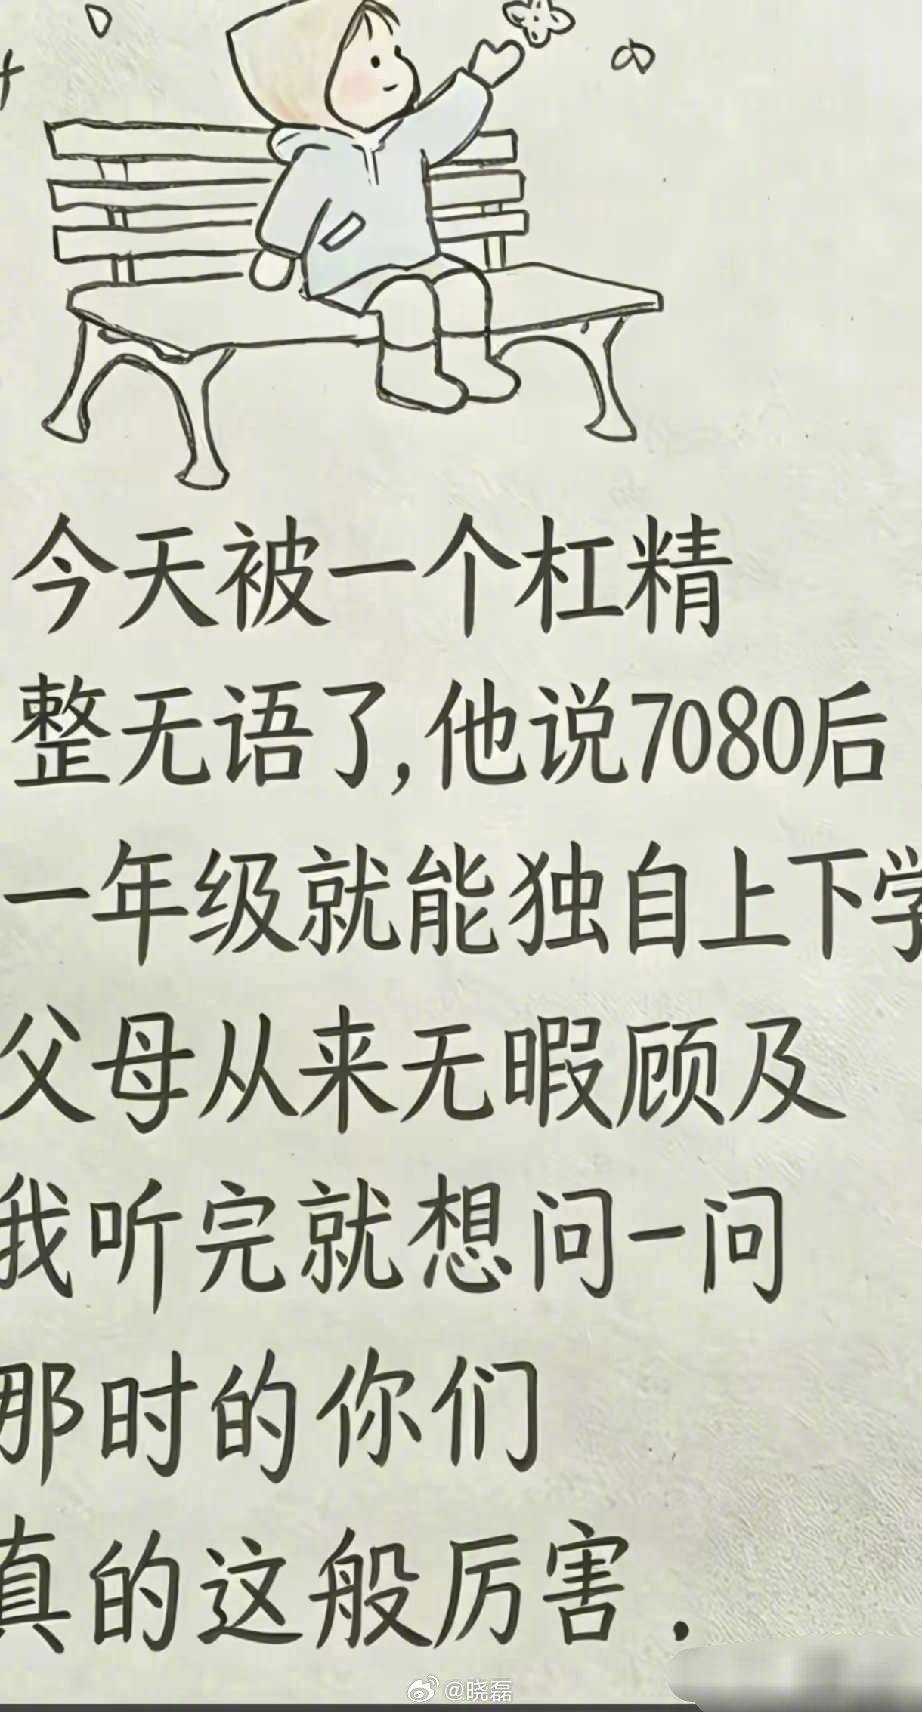 今天被一个杠精
整无语了,他说7080后
一年级就能独自上下学
父母从来无暇顾及
我听完就想问一问
那时的你们
真的这般厉害.
@晓磊